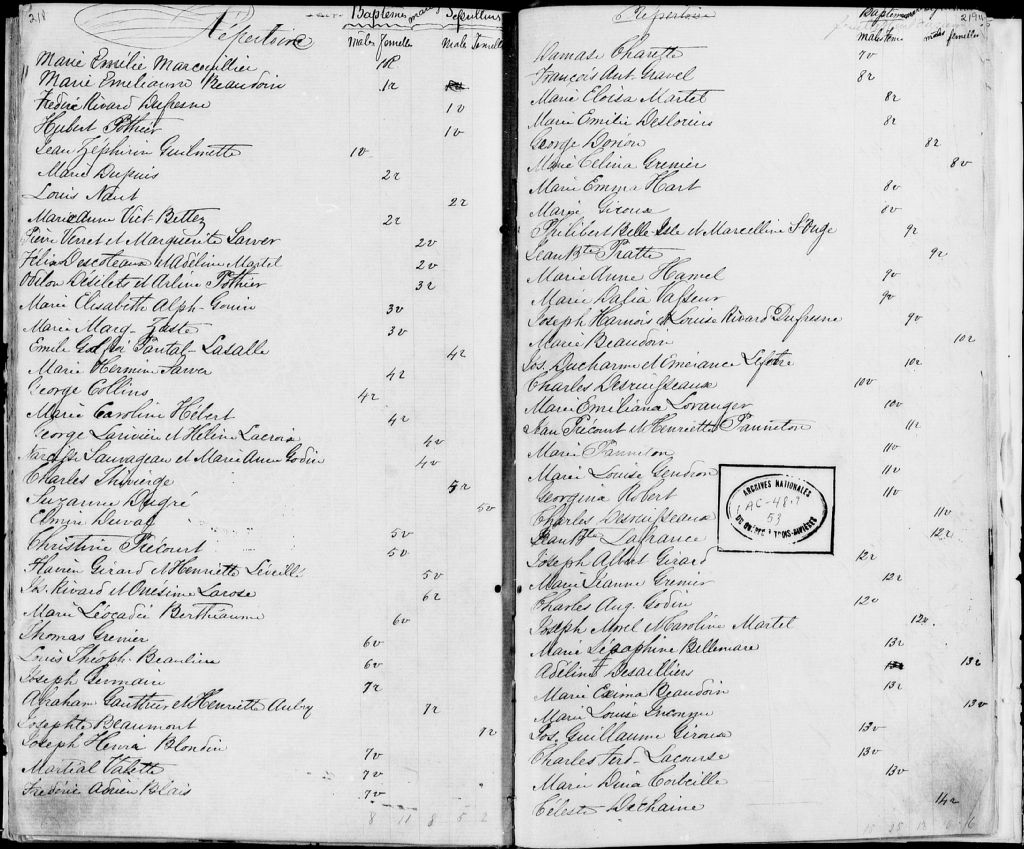 218
Répertoire
Baptemes mariag Sépultures
Males femelles Males femelles
Marie Emélie Marcouillier 1r
Marie Emélianne Beaudoin 1r
Frédéric Rivard Dufresne 1v
Hubert Pothier 1v
Jean Zéphirin Guilmette 1v
Marie Dupuis 2r
Louis Naut 2r
Marie Anne Vict. Bettez 2r
Pierre Verret et Marguerite Sarver 2v
Félix Descoteaux et Adéline Martel 2v
Odilon Désilets et Arline Pothier 3r
Marie Elisabeth Alph. Gouin 3v
Marie Marg. Zoste 3v
Emile Pantal. Lasalle 4r
Marie Hermine Sarver 4r
George Collins 4r
Marie Caroline Hébert 4r
George Larivière et Heline Lacroix 4v
Narcisse Sauvageau et Marie Anne Godin 4v
Charles Thivierge 5r
Suzanne Dugré 5v
Elmire Duval 5v
Christine Précourt 5v
Flavien Girard et Henriette Léveillé 5v
Js. Rivard et Onésime Larose 6r
Marie Léocadie Berthiaume 6v
Thomas Grenier 6v
Louis Théoph. Beaulieu 6v
Joseph Germain 7r
Abraham Gauthier et Henriette Aubry 7r
Josephte Beaumont 7r
Joseph Henri Blondin 7v
Martial Valette 7v
Frédéric Adrien Blais 7v
8 11 8 5 2
Répertoire
219
Baptemes
males feme males femelles
Damase Charette 7v
François Ant. Gravel 8r
Marie Eloïsa Martel 8r
Marie Emélie Desloriers 8r
George Dorion 8r
Marie Célina Grenier 8v
Marie Emma Hart 8v
Marie Giroux 8v
Philibert Belle Isle et Marcelline St Onge 9r
Jean Bte Pratte 9r
Marie Anne Hamel 9v
Marie Dalia Vasseur 9v
Joseph Harnois et Louise Rivard Dufresne 9v
Marie Beaudoin 10r
Jos. Ducharme et Emérance 10r
Charles Desruisseaux 10v
Marie Emiliana Loranger 10v
Jean Précourt et Henriette Panneton 11r
Marie Panneton 11v
Marie Louise Gendron 11v
Georgina Robert 11v
Charles Desruisseaux 11v
Jean Bte Lafrance 12r
Joseph Albert Girard 12r
Marie Jeanne Grenier 12r
Charles Aug. Godin 12v
Joseph Morel et Caroline Martel 12v
Marie Bellemare 13r
Adéline Desailliers 13r
Marie Exima Beaudoin 13r
Marie Louise 13v
Jos. Guillaume Giroux 13v
Charles Ferd. Lacourse 13v
Marie Dina Corbeille 13v
Céleste Dechaine 14r
ARCHIVES NATIONALES
AC-48-?
53
DU QUÉBEC À TROIS-RIVIÈRES